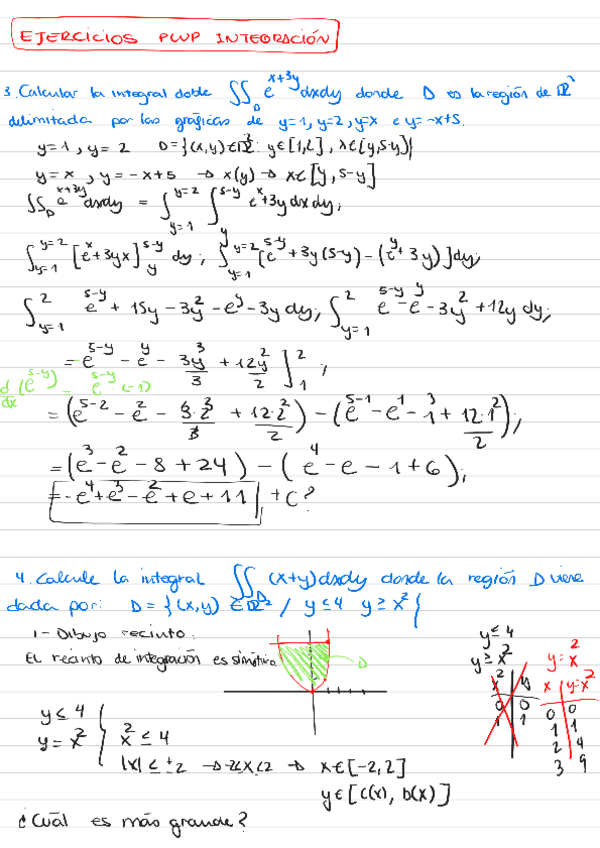 EJERCICIOS PWP INTEGRACIÓN
3. Calcular la integral doble ∬_D e^{x+3y} dxdy donde D es la región de ℝ²
delimitada por las gráficas de y=1, y=2, y=x e y=-x+5.
y=1, y=2 D={(x,y)∈ℝ²: y∈[1,2], x∈[y,5-y]}
y=x, y=-x+5 → x(y) → x∈[y, 5-y]
∬_D e^{x+3y} dxdy = ∫_{y=1}^{y=2} ∫_y^{5-y} e^x+3y dx dy;
∫_{y=1}^{y=2} [e^x+3yx]_y^{5-y} dy; ∫_{y=1}^{y=2} [e^{5-y}+3y(5-y)-(e^y+3y)]dy;
∫_{y=1}^2 e^{5-y}+15y-3y²-e^y-3y dy; ∫_{y=1}^2 e^{5-y}-e^y-3y²+12y dy;
= -e^{5-y} - e^y - 3y³/3 + 12y²/2 ]_1^2;
d/dx (e^{5-y}) = e^{5-y}·(-1)
= (e^{5-2} - e² - 3·2³/3 + 12·2²/2) - (e^{5-1} - e^1 - 1³ + 12·1²/2);
= (e³ - e² - 8 + 24) - (e⁴ - e - 1 + 6);
= -e⁴ + e³ - e² + e + 11 + C?
4. Calcule la integral ∬_D (x+y)dxdy donde la región D viene
dada por: D = {(x,y) ∈ ℝ² / y≤4 y≥x²}
1- Dibujo recinto:
El recinto de integración es simétrico
D
y≤4
y≥x²
x² y
0 0
1 1
y=x²
x y=x²
0 0
1 1
2 4
3 9
y≤4
y=x²
x²≤4
|x|≤±2 → -2≤x≤2 → x∈[-2,2]
y∈[c(x), b(x)]
¿Cuál es más grande?